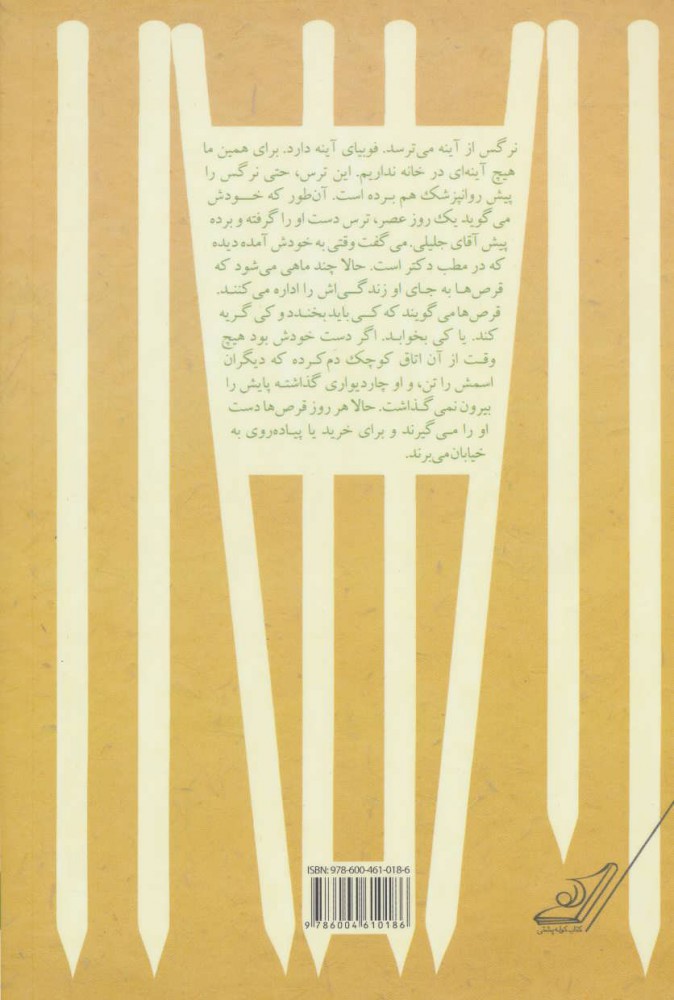 نرگس از آینه می‌ترسد. فوبیای آینه دارد. برای همین ما
هیچ آینه‌ای در خانه نداریم. این ترس، حتی نرگس را
پیش روانپزشک هم برده است. آن‌طور که خودش
می‌گوید یک روز عصر، ترس دست او را گرفته و برده
پیش آقای جلیلی. می‌گفت وقتی به خودش آمده دیده
که در مطب دکتر است. حالا چند ماهی می‌شود که
قرص‌ها به جای او زندگی‌اش را اداره می‌کنند.
قرص‌ها می‌گویند که کی باید بخندد و کی گریه
کند. یا کی بخوابد. اگر دست خودش بود هیچ
وقت از آن اتاق کوچک دم‌کرده که دیگران
اسمش را تن، و او چاردیواری گذاشته پایش را
بیرون نمی‌گذاشت. حالا هر روز قرص‌ها دست
او را می‌گیرند و برای خرید یا پیاده‌روی به
خیابان می‌برند.
ISBN: 978-600-461-018-6
9 786004 610186
کتاب کوله‌پشتی